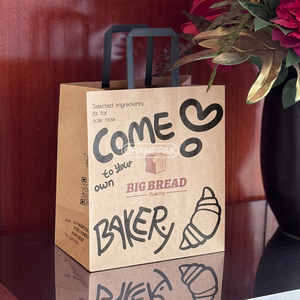 Selected ingredients
It's for
sale now
COME
to your
own
BIG BREAD
Bakery
BAKERY